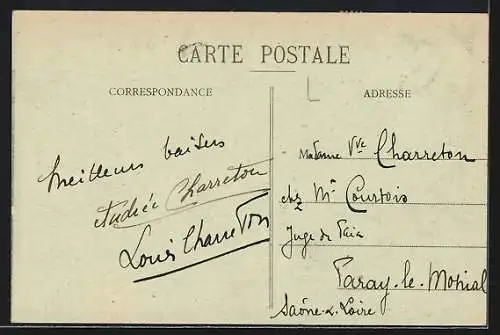 CARTE POSTALE
CORRESPONDANCE
ADRESSE
Meilleurs baisers
Andrée Charreton
Louis Charreton
Madame Vve Charreton
chez Mr Courtois
Juge de Paix
Paray-le-Monial
Saône-&-Loire